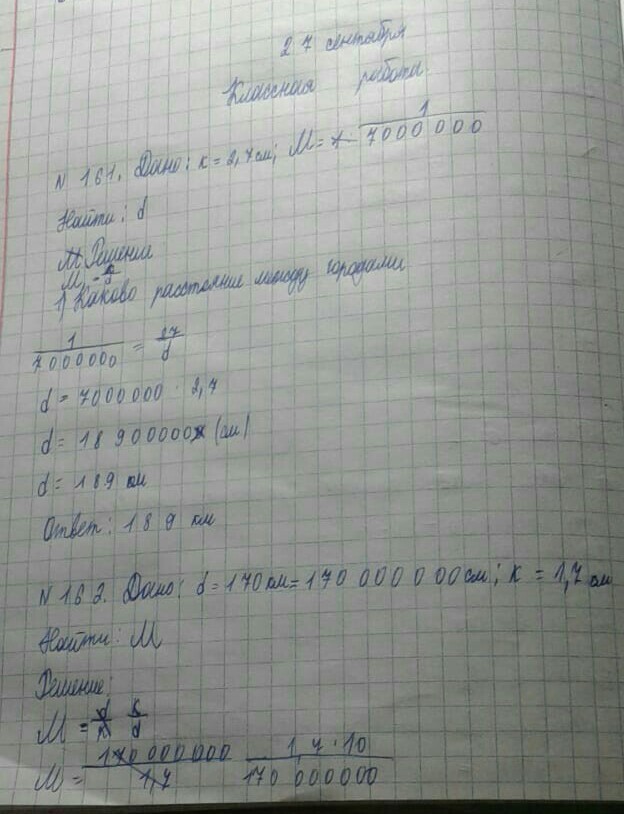 27 сентября
Классная работа
N 161. Дано: к = 2,7 см; М = 1/7000 000
Найти: d
Решение
М = к/d
1) Каково расстояние между городами
1/7000000 = 2,7/d
d = 7000000 · 2,7
d = 18 900000 (см)
d = 189 км
Ответ: 189 км
N 162. Дано: d = 170 км = 170 000 0 00 см; к = 1,7 см
Найти: М
Решение:
М = к/d
М = 170 000 000/1,7 1,7·10/170 000000